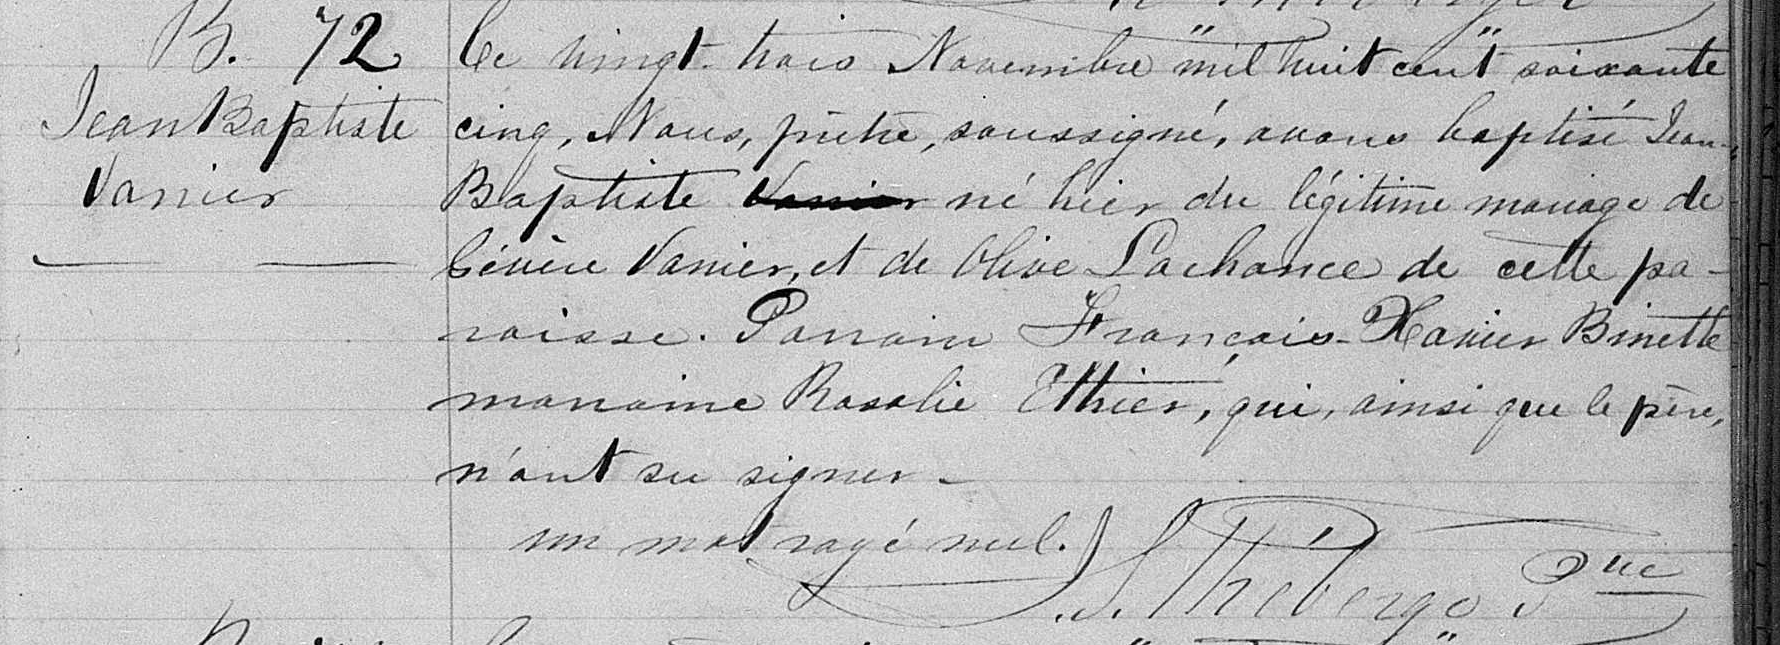 B. 72
Jean Baptiste
Vanier
Ce vingt-trois Novembre "mil huit cent" soixante
cinq, Nous, prêtre, soussigné, avons baptisé Jean-
Baptiste Vanier né hier du légitime mariage de
Vanier, et de Olive Lachance de cette pa-
roisse. Parrain François-Xavier Binette
marraine Rosalie Ethier, qui, ainsi que le père,
n'ont su signer -
un mot rayé nul.
Théberge Ptre